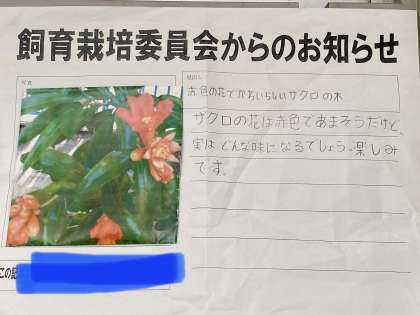 飼育栽培委員会からのお知らせ
写真
お色の花でかわいらしいサクロの木
サクロの花は赤色であまそうだけど、
実はどんな味になるでしょう。楽しみ
です。
この